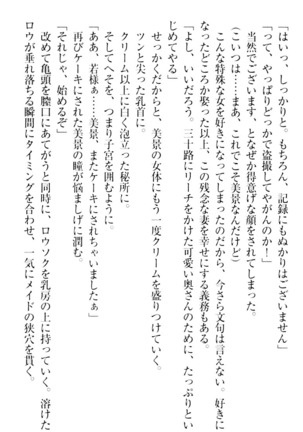 「はいっ、しっかりと。もちろん、記録にもぬかりはございません」
「って、やっぱりどっかで盗撮してやがんのか！」
　当然でございます、となぜか得意げな顔をされてしまった。
（こいつは……まあ、これでこそ美景なんだけど）
　こんな特殊な女を好きになってしまったのだから、今さら文句は言えない。好きに
なったどころか娶った以上、この残念な妻を幸せにする義務もある。
「よし、いいだろう。三十路にリーチをかけた可愛い奥さんのために、たっぷりとい
じめてやる」
　せっかくだからと、美景の女体にもう一度クリームを盛りつけていく。
　ツンと尖った乳首に。
　クリーム以上に白く泡立った秘所に。
　そしてへそを、つまり子宮を囲むように。
「ああ、若様ぁ……美景、またケーキにされちゃいましたぁ」
　再びケーキにされた美景の瞳が悩ましげに潤む。
「それじゃ、始めるぞ」
　改めて亀頭を膣口にあてがうと同時に、ロウソクを乳房の上に持っていく。溶けた
ロウが垂れ落ちる瞬間にタイミングを合わせ、一気にメイドの狭穴を貫く。